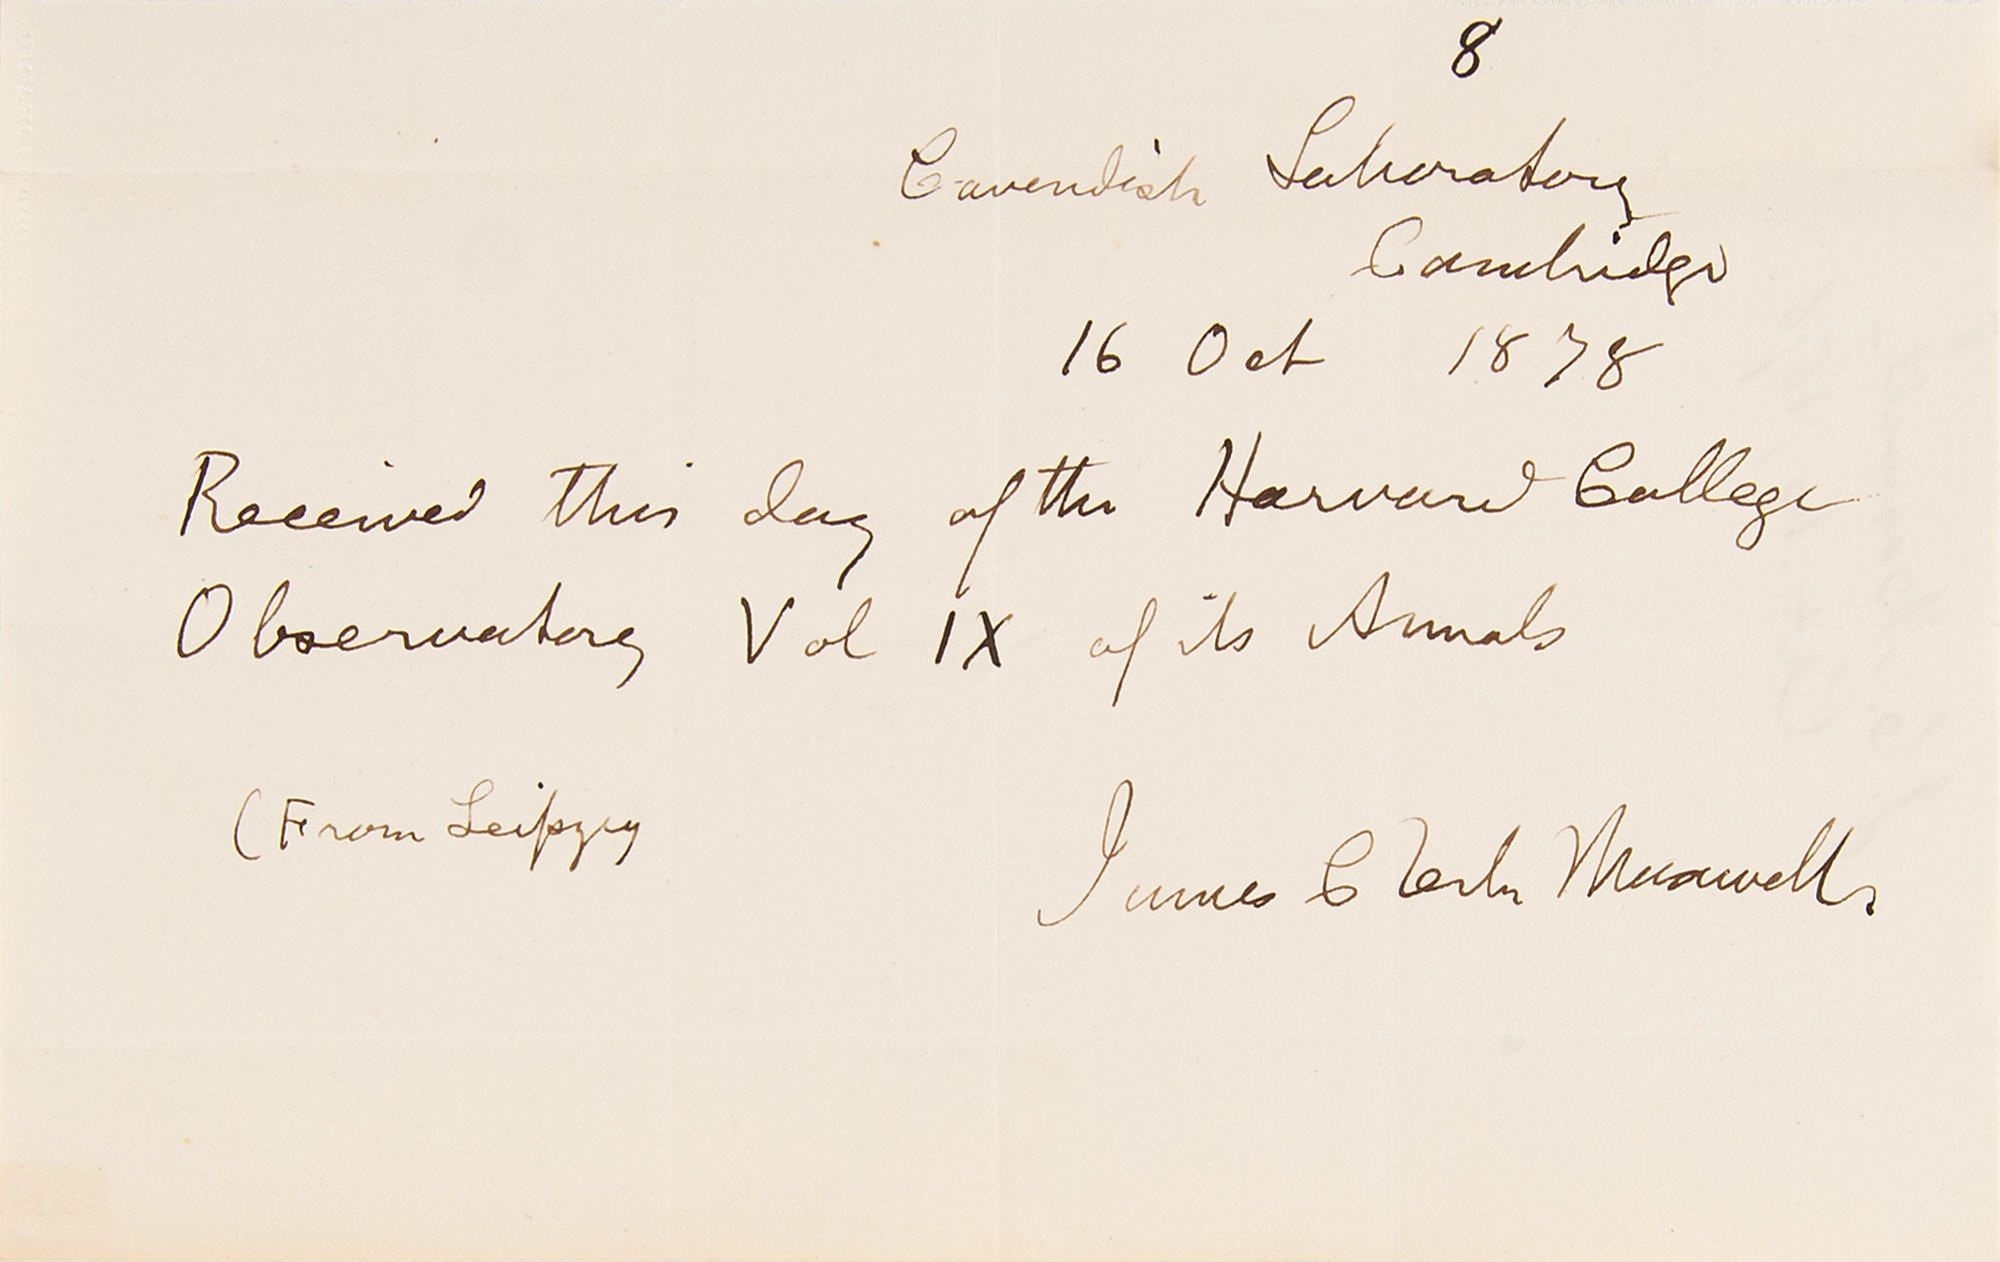 8
Cavendish Laboratory
Cambridge
16 Oct 1878
Received this day of the Harvard College
Observatory Vol IX of its Annals
(From Leipzig
James Clerk Maxwell.